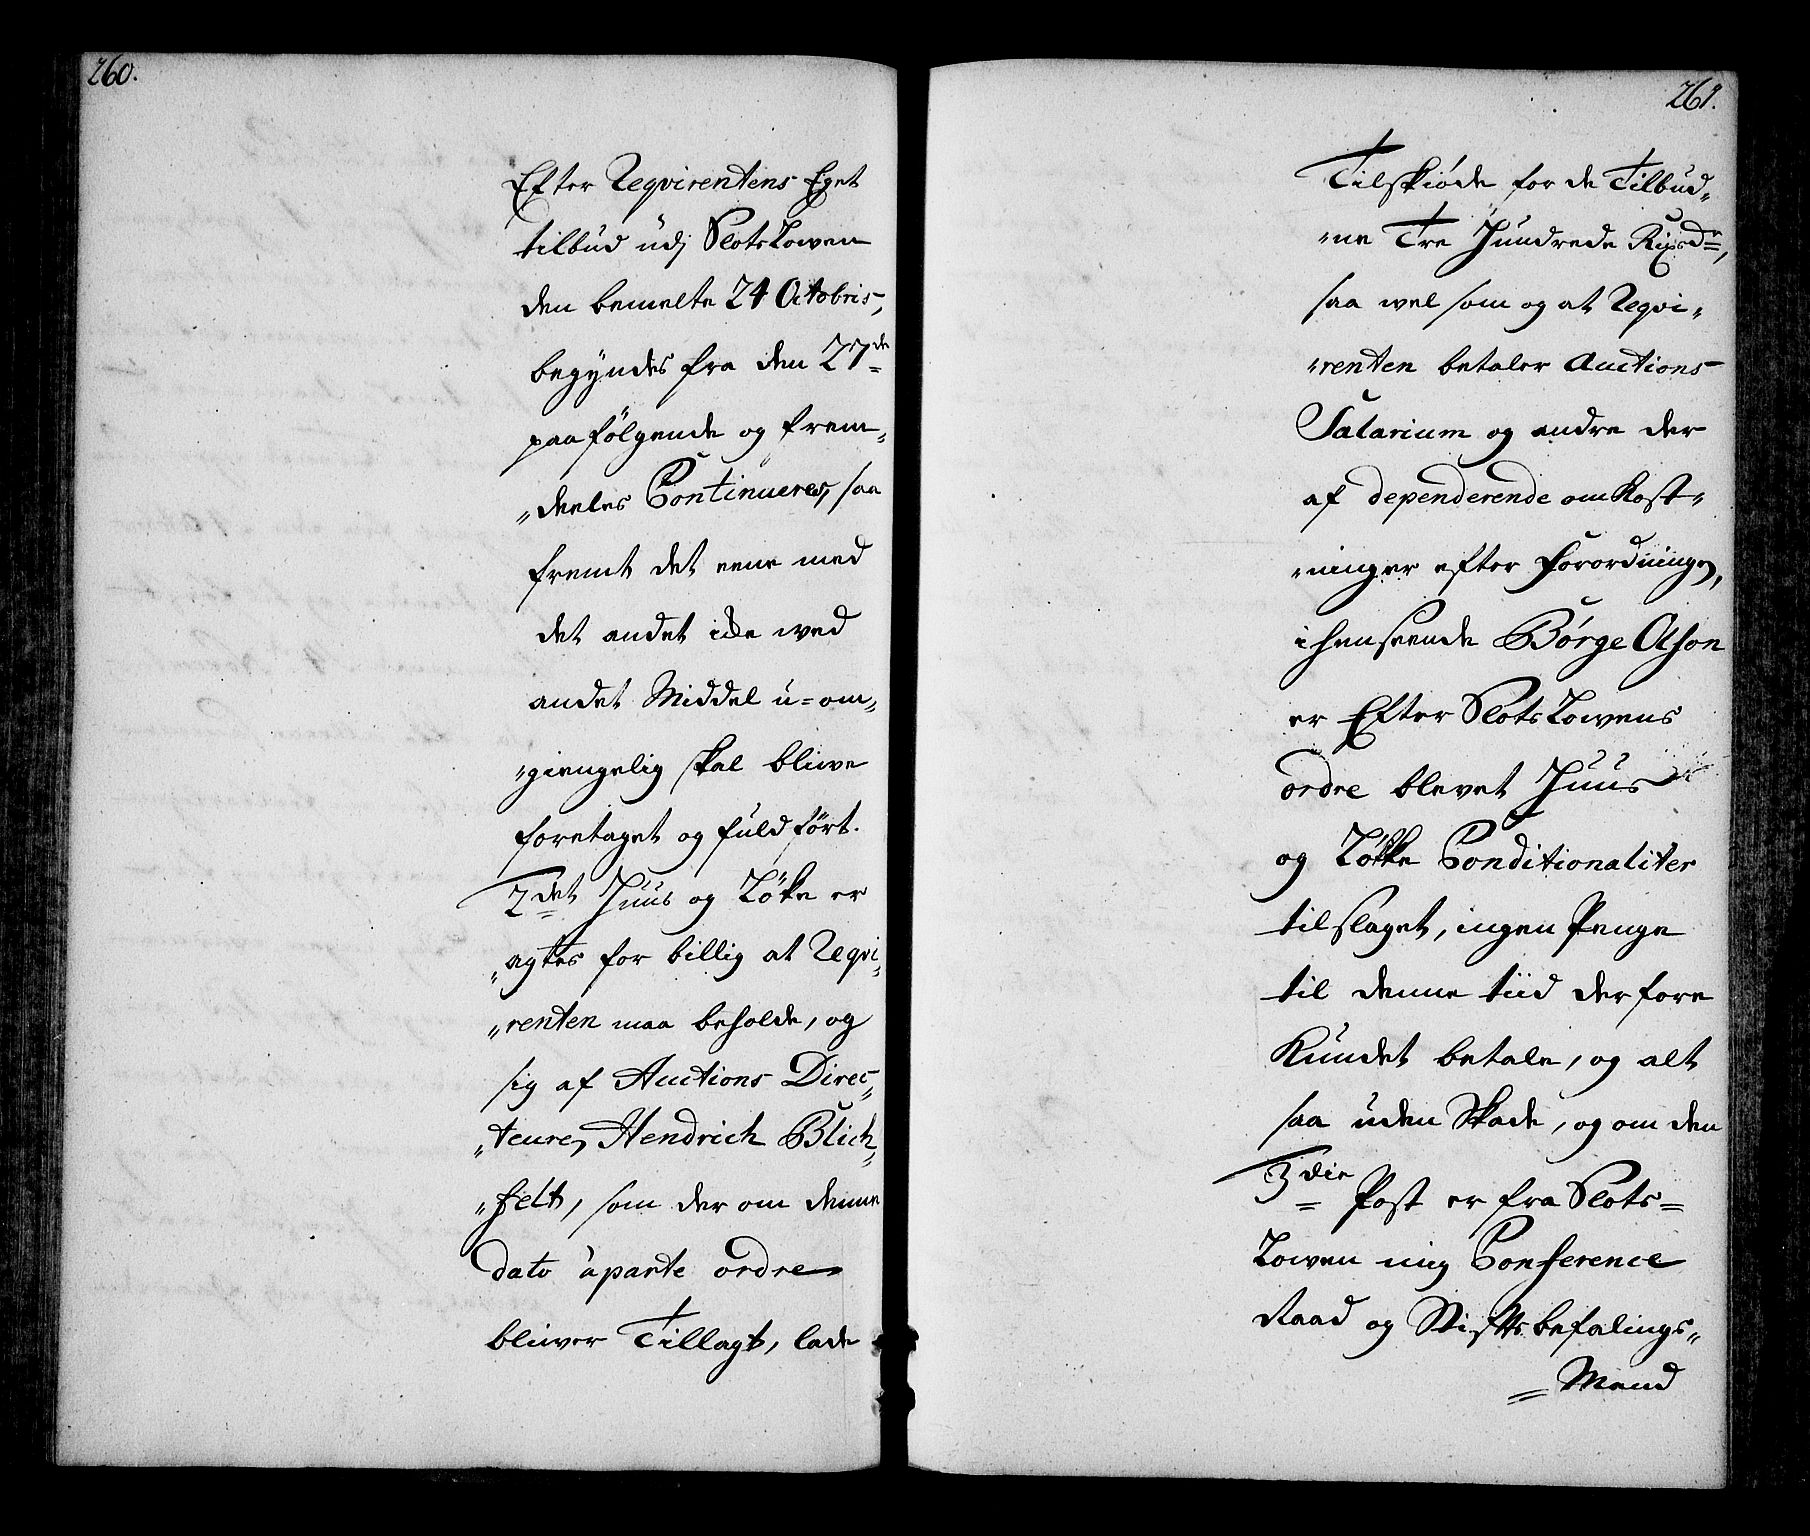 260.
Efter Reqvirentens Eget
tilbud udj SlotsLowen
den bemelte 24 Octobris,
begyndes fra den 27de
paafølgende og frem„
„deeles Continueres, saa
fremt det eene med
det andet icke wed
andet Middel u=om„
„giengelig skal bliwe
foretaget og fuldført.
2det Huus og Løke er
„agtes for billig at Reqvi„
„renten maa beholde, og
sig af Auctions Direc„
„teuren Hendrich Blich„
„felt, som der om denne
dato aparte ordre
bliwer Tillagt, lade
261.
Tilskiøde for de Tilbud„
„ne Tre Hundrede Rixdr,
saa wel som og at Reqvi„
„renten betaler Auctions
Salarium og andre der
af dependerende omkost„
„ninger efter forordningen,
i henseende Børge Olson
er Efter SlotsLowens
ordre blevet Huus
og Løkke Conditionaliter
tilslaget, ingen Penge
til denne tiid derfore
Kundet betale, og alt
saa uden Skade, og om den
3die Post er fra Slots=
Lowen mig Conference
Raad og Stiftsbefalings„
= Mand